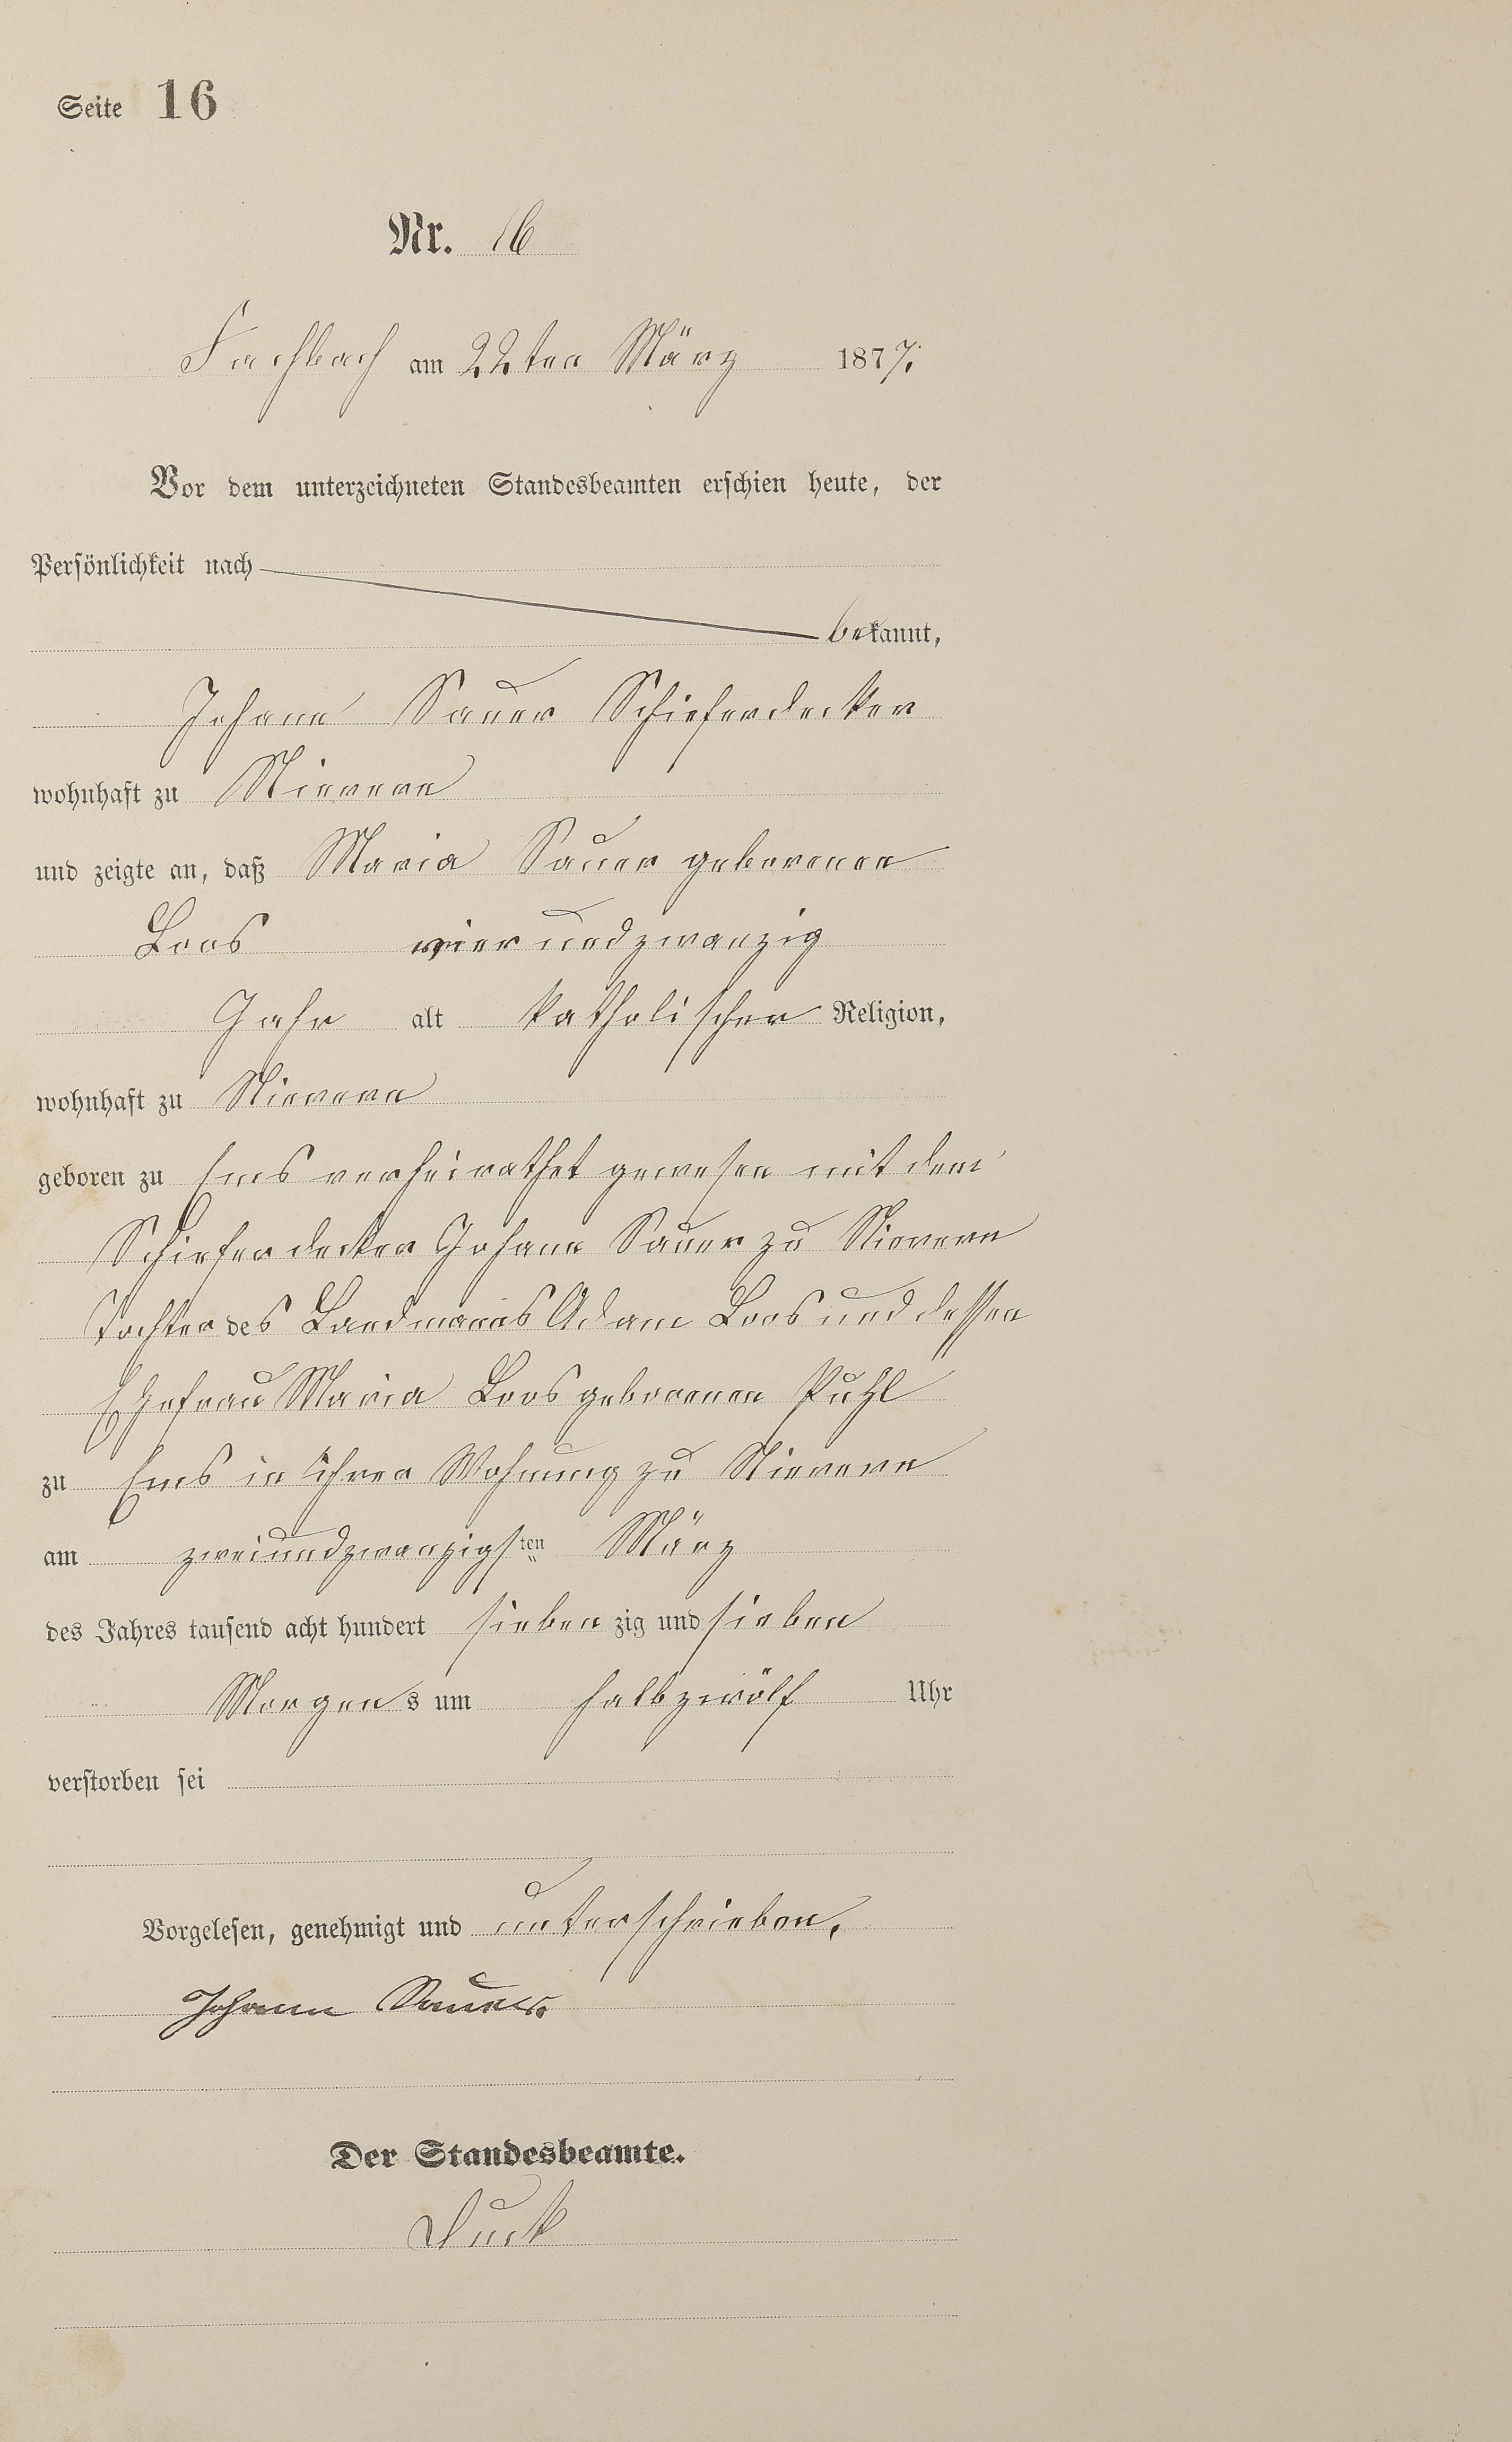 Seite 16
Nr. 16
Fachbach am 22ten März 1877.
Vor dem unterzeichneten Standesbeamten erschien heute, der
Persönlichkeit nach
bekannt,
Johann Sauer Schieferdecker
wohnhaft zu Nievern
und zeigte an, daß Maria Sauer geborenen
Loos vierundzwanzig
Jahr alt katholischer Religion,
wohnhaft zu Nievern
geboren zu Ems verheirathet gewesen mit dem
Schieferdecker Johann Sauer zu Nievern
Tochter des Landmanns Adam Loos und dessen
Ehefrau Maria Loos geborenen Puhl
zu Ems in ihrer Wohnung zu Nievern
am zweiundzwanzigsten März
des Jahres tausend acht hundert siebenzig und sieben
Morgens um halbzwölf Uhr
verstorben sei
Vorgelesen, genehmigt und unterschrieben.
Johann Sauer.
Der Standesbeamte.